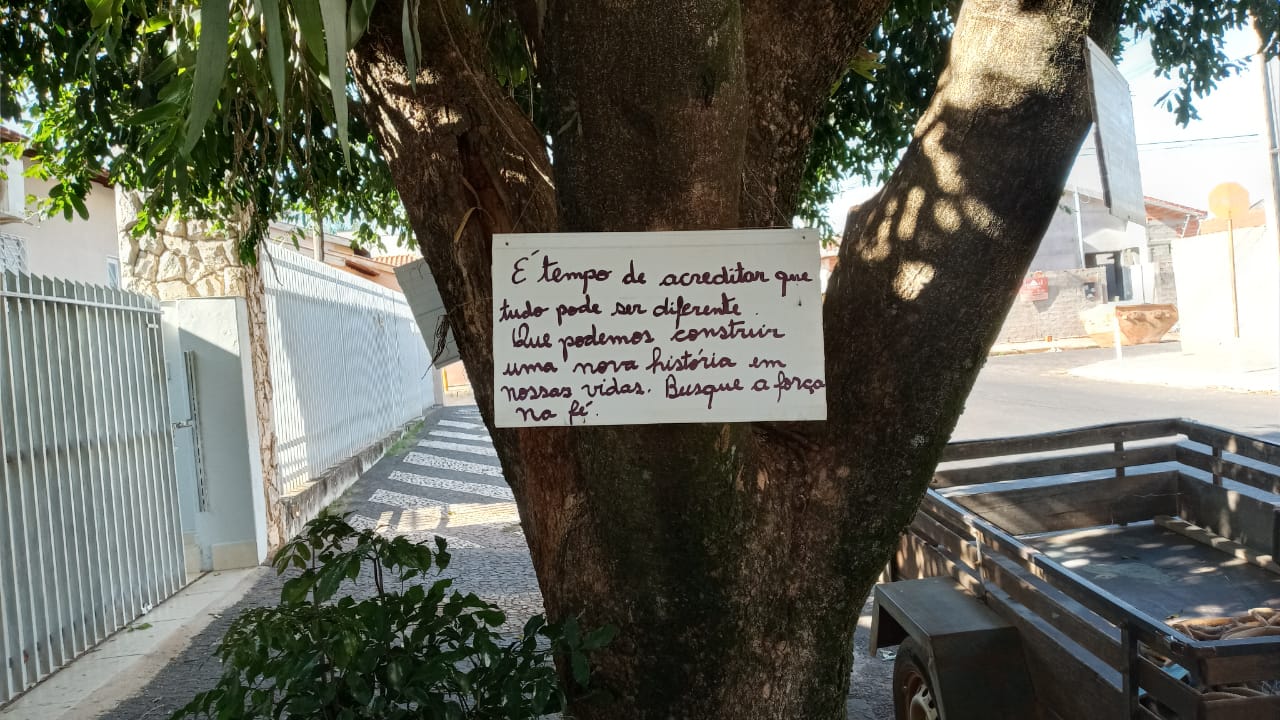 É tempo de acreditar que
tudo pode ser diferente.
Que podemos construir
uma nova história em
nossas vidas. Busque a força
na fé.